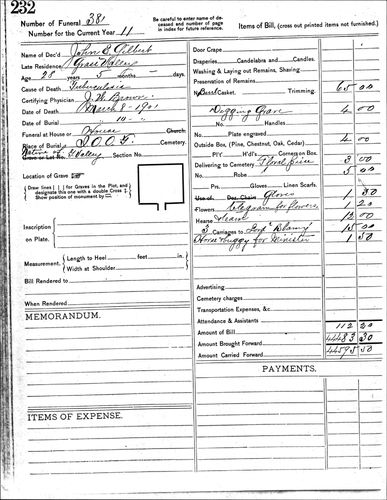 232
Number of Funeral 381
Number for the Current Year 11
Be carefull to enter name of deceased and number of page in index for future reference.
Items of Bill, (cross out printed items not furnished.)
Name of Dec'd John S. Gilbert
Late Residence Grass Valley
Age 28 years 5 months days.
Cause of Death Tuberculosis
Certifying Physician J. W. Brown
Date of Death March 8-1901
Date of Burial " 10- "
Funeral at House or House Church.
Place of Burial I.O.O.F. Cemetery.
Grave or Lot No. Section No.
Location of Grave
Draw lines ( ) for Graves in the Plot, and designate this one with a double Cross
Show position of monument by
Inscription on Plate.
Measurement. Length to Heel feet in.
Width at Shoulder
Bill Rendered to
When Rendered
MEMORANDUM.
ITEMS OF EXPENSE.
Door Crape
Draperies Candelabra and Candles.
Washing & Laying out Remains, Shaving
Preservation of Remains
Casket. Trimming. 65 00
Digging Grave 4 00
No Handles
Plate engraved
Outside Box, (Pine, Chestnut, Oak, Cedar) 4 00
Pl'y H'd's Corners on Box.
Delivering to Cemetery Floral piece 3 00
No Robe 5 00
Prs. Gloves Linen Scarfs.
Use of Doz. Chairs Gloves 1 50
Flowers Telegram for flowers 1 20
Hearse Team 12 00
3 Carriages to 15 00
Horse & buggy for Minister 1 50
Advertising
Cemetery charges
Transportation Expenses, &c
Attendance & Assistants
Amount of Bill 112 20
Amount Brought Forward 4483 30
Amount Carried Forward 4595 50
PAYMENTS.